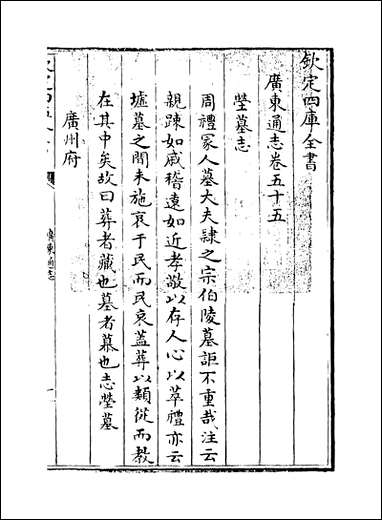 欽定四庫全書
廣東通志卷五十五
塋墓志
周禮冢人墓大夫隸之宗伯陵墓詎不重哉注云
親踈如戚稽遠如近孝敬以存人心以萃禮亦云
墟墓之間未施哀于民而民哀蓋葬以類從而教
在其中矣故曰葬者藏也墓者慕也志塋墓
廣州府
廣東通志